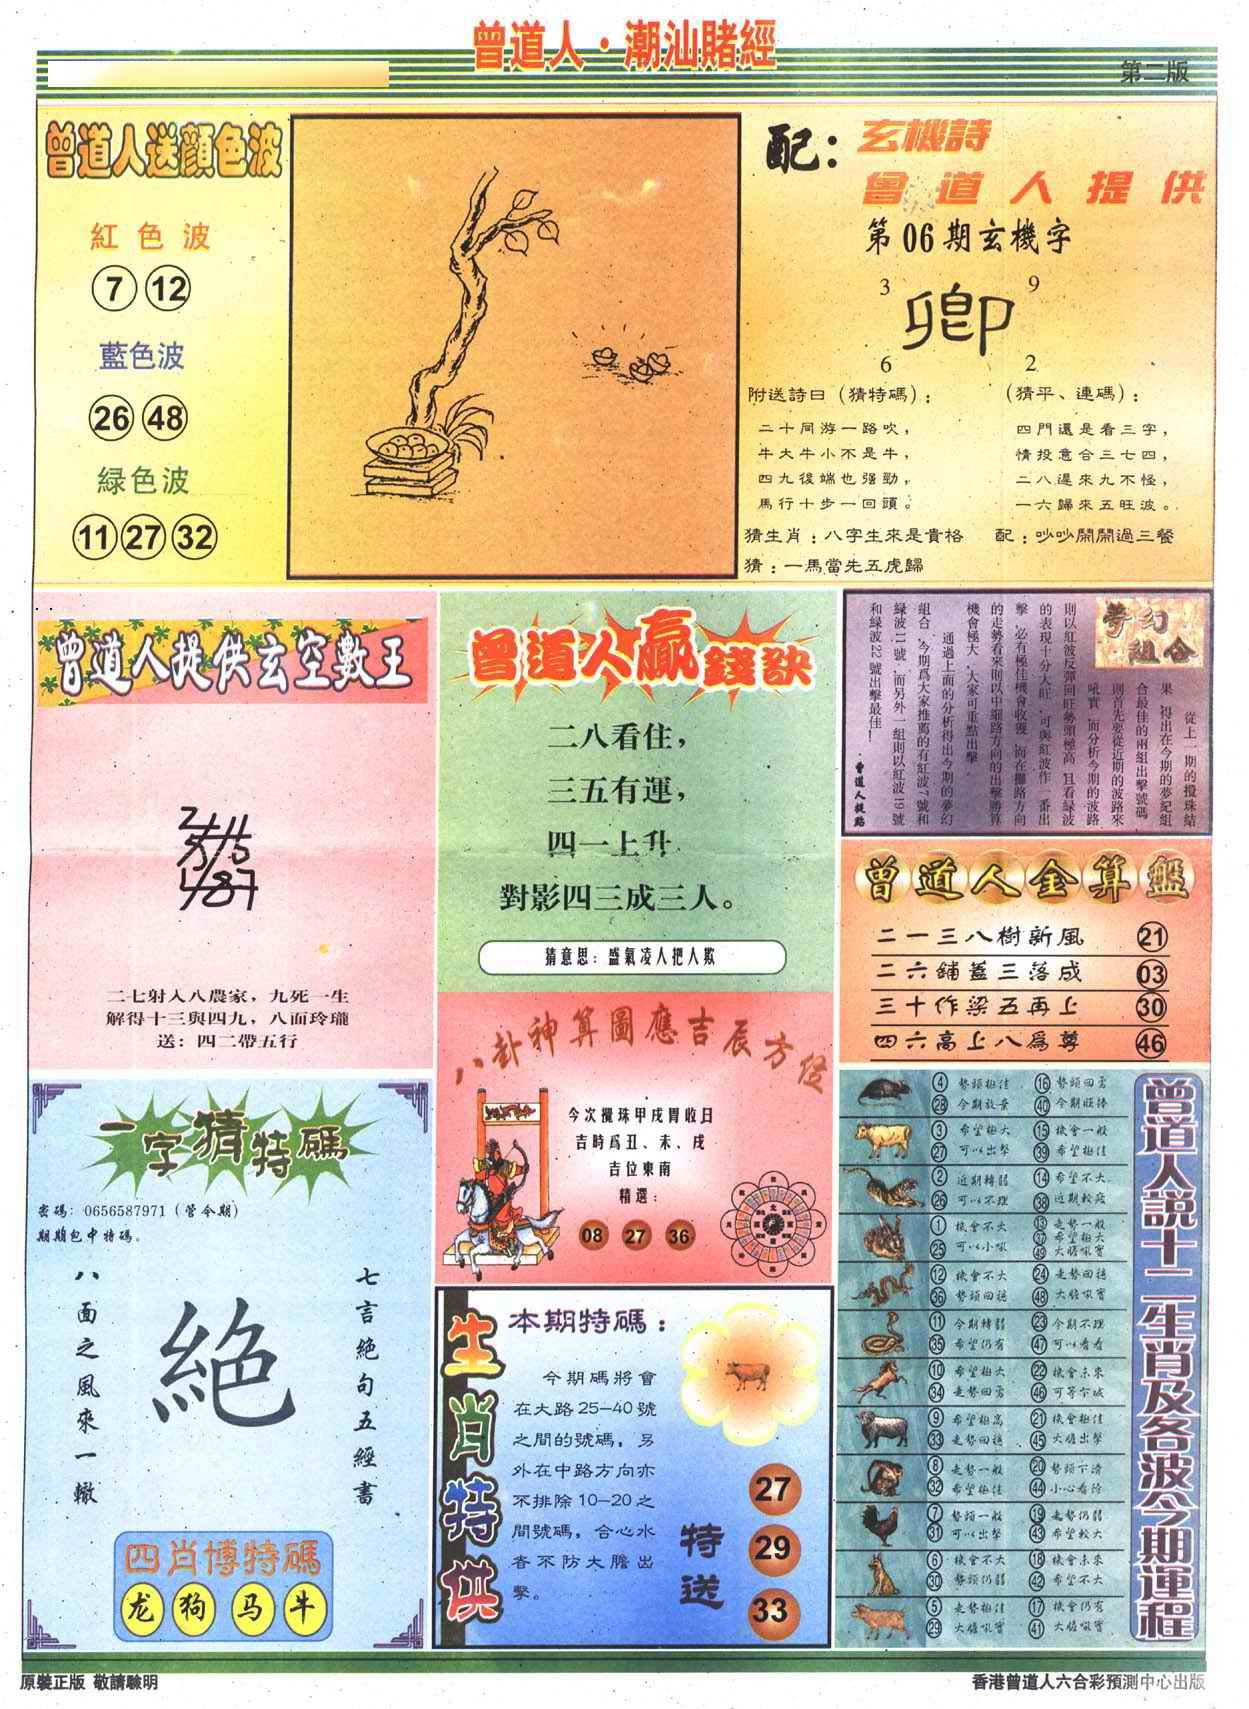 曾道人·潮汕賭經
第二版
曾道人送顏色波
紅色波
7 12
藍色波
26 48
緑色波
11 27 32
配：
玄機詩
曾道人提供
第06期玄機字
3 9
卿
6 2
附送詩曰（猜特碼）：
二十同游一路吹，
牛大牛小不是牛，
四九後端也强勁，
馬行十步一回頭。
（猜平、連碼）：
四門還是看三字，
情投意合三七四，
二八遲來九不怪，
一六歸來五旺波。
猜生肖：八字生來是貴格
配：吵吵鬧鬧過三餐
猜：一馬當先五虎歸
曾道人提供玄空數王
二七射入八農家，九死一生
解得十三與四九，八面玲瓏
送：四二帶五行
曾道人贏錢訣
二八看住，
三五有運，
四一上升
對影四三成三人。
猜意思：盛氣凌人把人欺
夢幻組合
從上一期的攪珠結
果，得出在今期的夢紀組
合最佳的兩組出擊號碼
則首先要從近期的波路來
吼實，而分析今期的波路
則以紅波反彈回旺勢頭極高，且看緑波
的表現十分大旺，可與紅波作一番出
擊，必有極佳機會收獲，而在攤路方向
的走勢看來則以中龍路方向的出擊勝算
機會極大，大家可重點出擊。
通過上面的分析得出今期的夢幻
組合，今期爲大家推薦的有紅波7號和
緑波11號，而另外一組則以紅波19號
和緑波22號出擊最佳！
·曾道人提點
曾道人金算盤
二一三八樹新風 21
二六鋪蓋三落成 03
三十作梁五再上 30
四六高上八爲尊 46
八卦神算圖應吉辰方位
今次攪珠甲戌胃收日
吉時爲丑、未、戌
吉位東南
精選：
08 27 36
一字猜特碼
密碼：0656587971（管今期）
期期包中特碼。
七言絶句五經書
絶
八面之風來一轍
四肖博特碼
龙 狗 马 牛
生肖特供
本期特碼：
今期碼將會
在大路25—40號
之間的號碼，另
外在中路方向亦
不排除10—20之
間號碼，合心水
者不防大膽出
擊。
特送
27
29
33
曾道人説十二生肖及各波今期運程
4 勢頭極佳 16 勢頭回勇
28 今期放棄 40 今期旺捧
3 希望極大 15 機會一般
27 可以出擊 39 希望極佳
2 近期轉弱 14 希望不大
26 可以不理 38 近期較疲
1 機會不大 13 走勢一般
25 可以小吼 37 希望極大
49 大膽吼實
12 機會不大 24 走勢回穩
36 勢頭回穩 48 大膽吼實
11 今期轉弱 23 今期不理
35 希望仍有 47 可以看看
10 希望極大 22 機會未來
34 走勢回勇 46 可等下城
9 希望極高 21 機會極佳
33 走勢回穩 45 大膽出擊
8 走勢一般 20 勢頭下滑
32 希望極佳 44 小心看待
7 勢頭一般 19 走勢仍弱
31 可以出擊 43 希望較大
6 機會不大 18 機會未來
30 勢頭仍弱 42 希望不大
5 走勢極佳 17 機會仍有
29 大膽吼實 41 大膽吼實
原裝正版 敬請驗明
香港曾道人六合彩預測中心出版